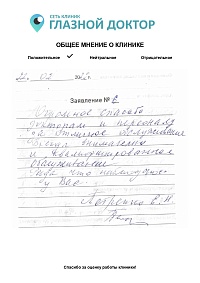 СЕТЬ КЛИНИК
ГЛАЗНОЙ ДОКТОР
ОБЩЕЕ МНЕНИЕ О КЛИНИКЕ
Положительное Нейтральное Отрицательное
22. 02
Заявление №
Огромное спасибо
докторам и персоналу
за отличное обслуживание
внимание
и квалифицированное
обслуживание
Рада что нахожусь
у Вас
Спасибо за оценку работы клиники!